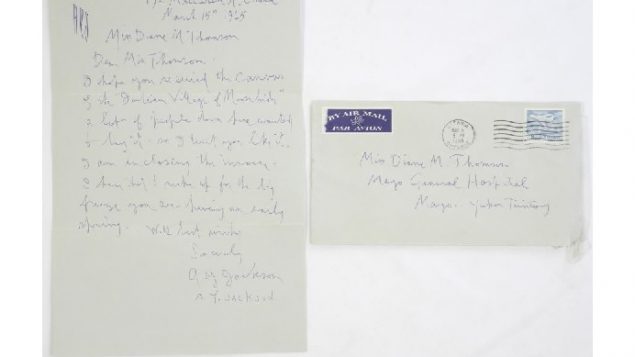 March 15th 1965
Miss Diane M Thomson
Dear Miss Thomson.
I hope you received the canvas
of the Indian Village of Moosehide"
a lot of people down here wanted
to buy it. so I trust you like it,
I am enclosing the
I up for the big
freeze you are having an early
spring. With best wishes
Sincerely
A Y Jackson
A. Y. JACKSON
BY AIR MAIL
PAR AVION
Miss Diane M. Thomson
Mayo General Hospital
Mayo.. Yukon Territory